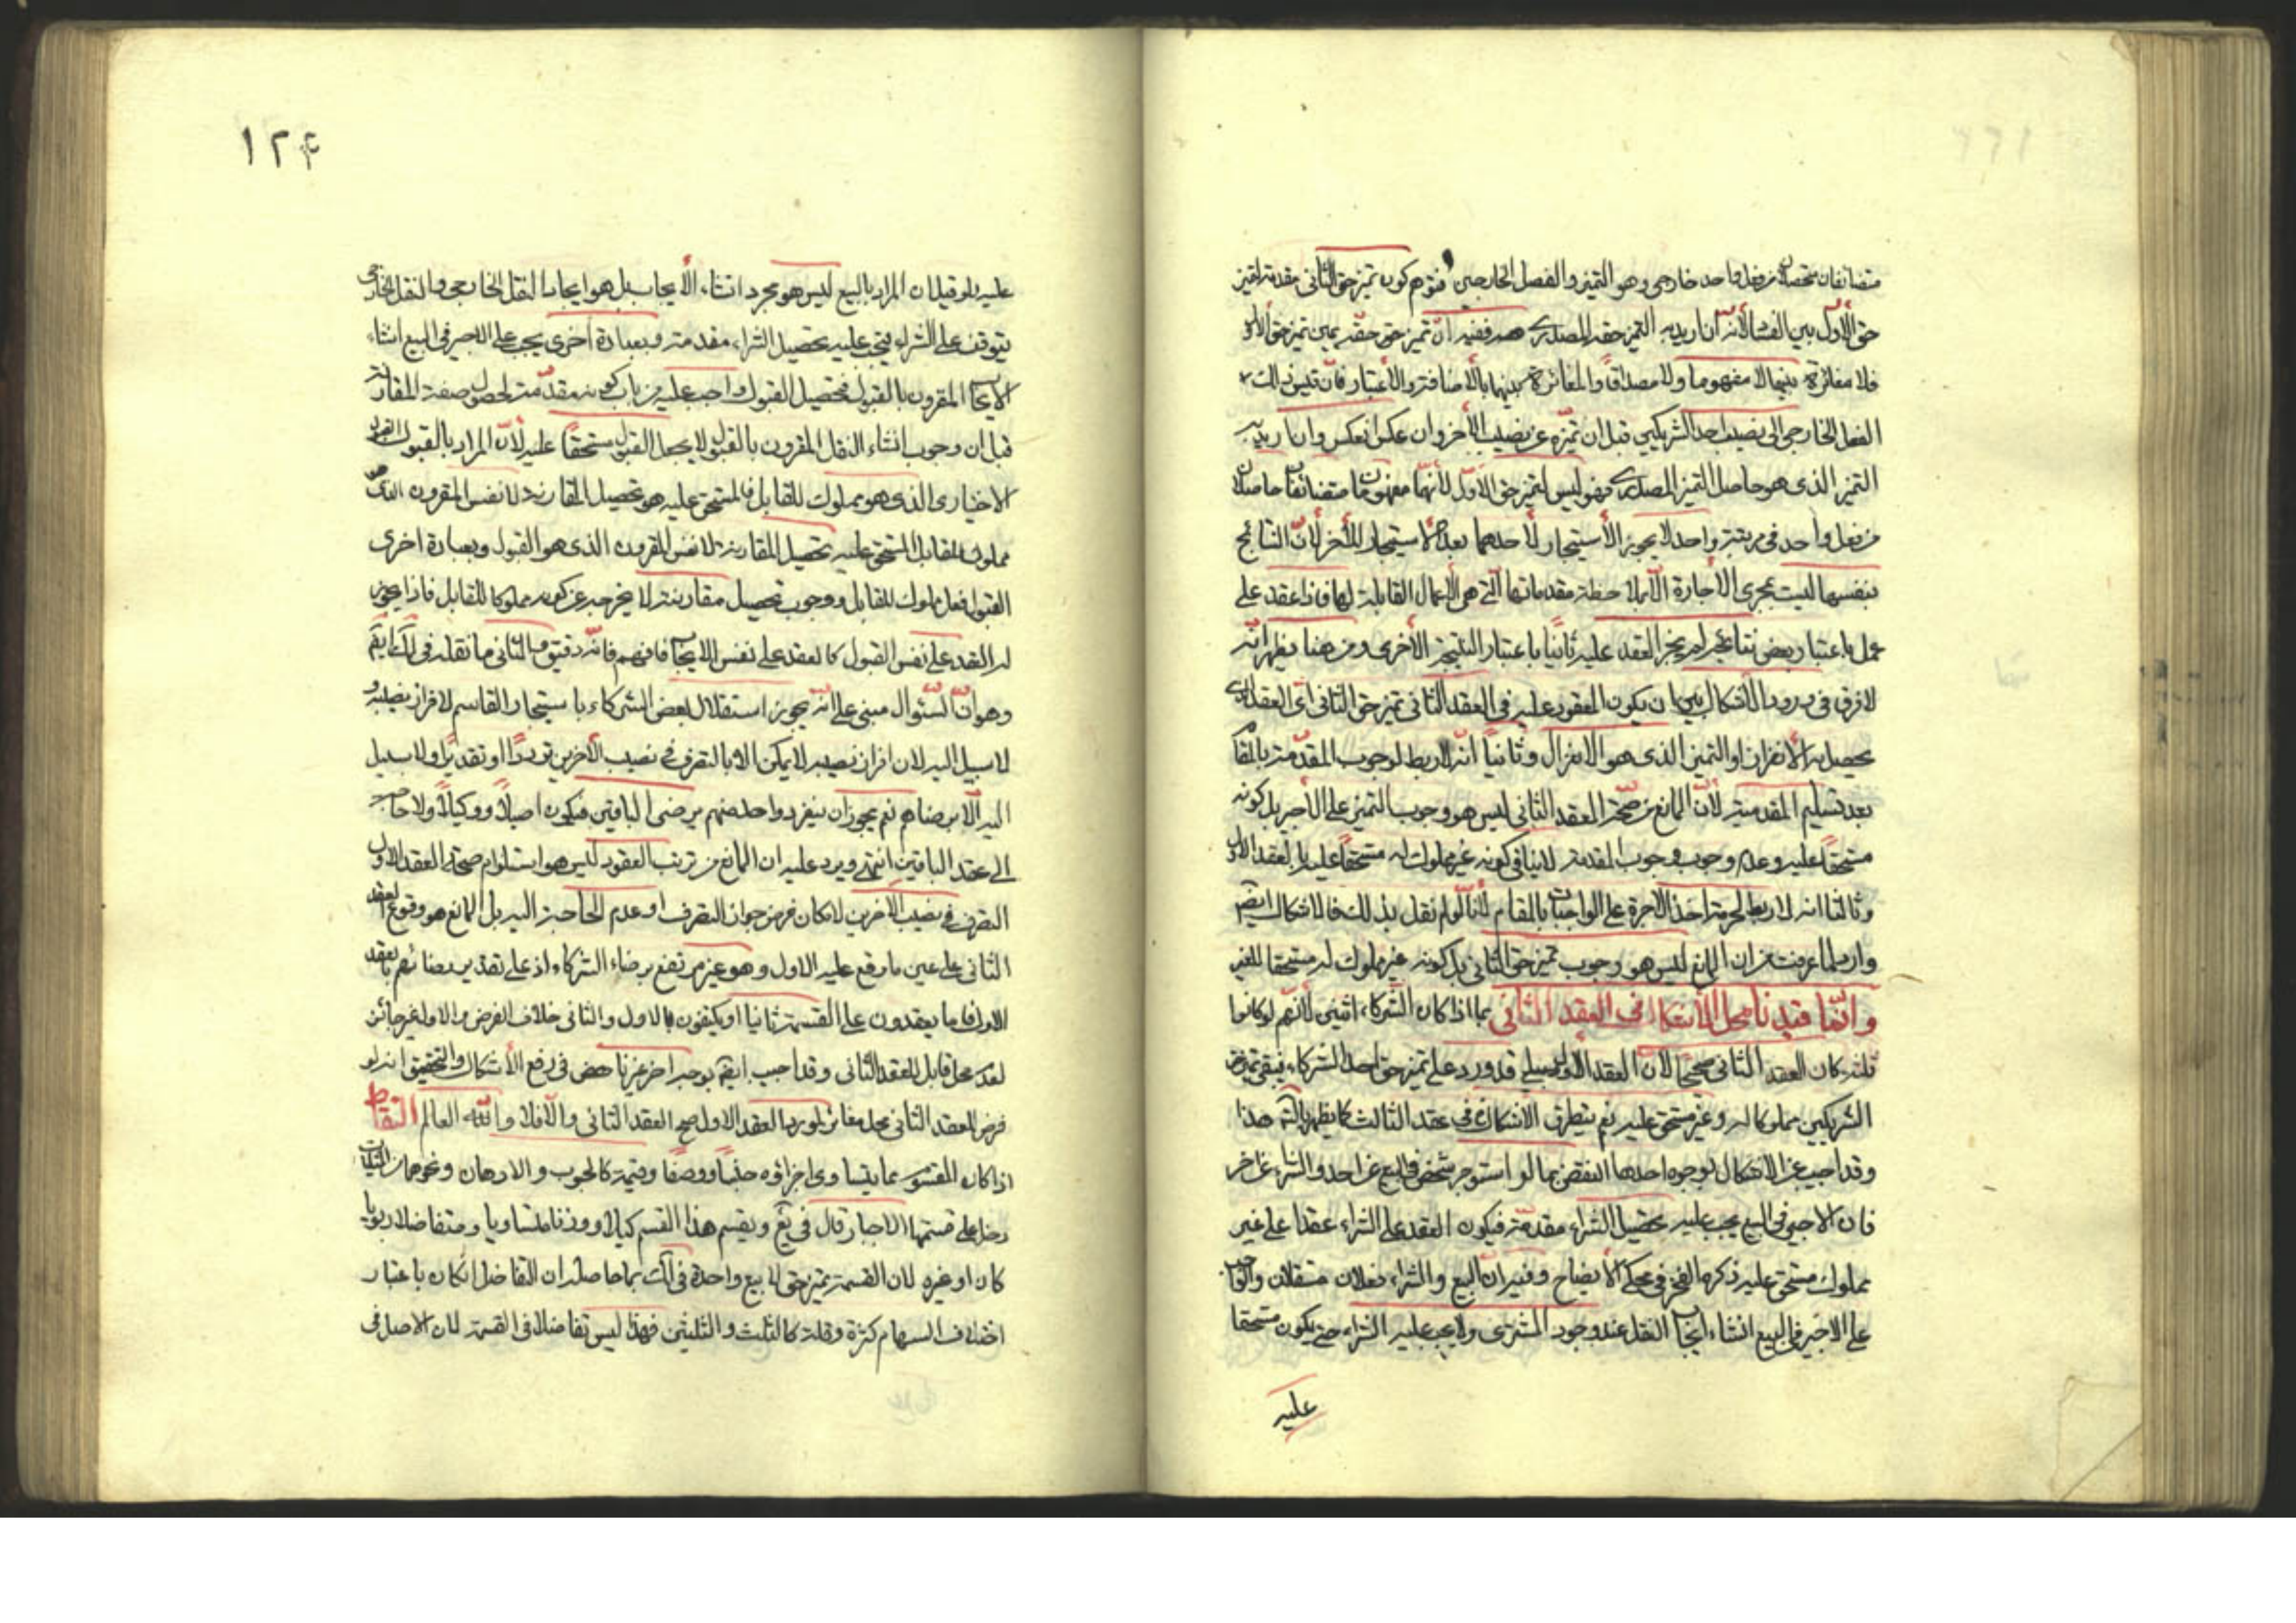 متضائفان متحصلان من فعل واحد خارجي وهو التميز والفصل الخارجين فتوهم كون تميز حق الثاني مقدمة لتميز
حق الأول بين الفساد لأنه ان اريد به التميز حقه المصدري ففيه أن تميز حق حقه يمين تميز حق الأول
فلا مغائرة بينهما لا مفهوما ولا مصداقا والمغائرة بينهما بالأضافة والأعتبار فان قيس ذلك
الفعل الخارجي الى نصيب احد الشريكين قبل ان تميزه عن نصيب الأخر وان عكس انعكس وان اريد به
التميز الذي هو حاصل التميز المصدري فهو ليس لتميز حق الأول لأنهما مفهومان متضائفان حاصلان
من فعل واحد في مرتبة واحدة لا يجوز الأستيجار لأحدهما بعد الاستيجار للأخر لأن النتائج
بنفسها ليست بمجرى الاجارة الا بملاحظة مقدماتها التي هي الأعمال القابلة لها فاذا عقد على
عمل باعتبار بعض نتائجه لم يجز العقد عليه ثانيا باعتبار النتيجة الأخرى ومن هنا يظهر انه
لا فرق في ورود الأشكال بين ان يكون المعقود عليه في العقد الثاني تميز حق الثاني اى العقد الذي
يحصل به الأنفراز او التميز الذي هو الانعزال وثانيا انه لا ربط لوجوب المقدمة بالمقام
بعد تسليم المقدمية لأن المانع من صحة العقد الثاني ليس هو وجوب التميز على الأجير بل كونه
مستحقا عليه وعدم وجوب وجوب المقدمة لا ينافي كونه غير مملوك له مستحقا عليه بالعقد الأول
وثالثا انه لا ربط لحرمة اخذ الاجرة على الواجبات بالمقام لأنا لو لم نقل بذلك فالاشكال ايضا
وارد لما عرفت من ان المانع ليس هو وجوب تميز حق الثاني بل كونه غير مملوك له مستحقا للغير
وانما قيدنا محل الأشكال في العقد الثاني بما اذا كان الشركاء اثنين لأنهم لو كانوا
ثلثة كان العقد الثاني صحيحا لأن العقد الأول قد ورد على تميز حق احد الشركاء فيبقى تميز حق
الشريكين مملوكا له وغير مستحق عليه نعم يتطرق الاشكال في عقد الثالث كما يظهر بالتامل هذا
وقد اجيب عن الاشكال بوجوه احدها النقض بما لو استوجر شخص في البيع عن احد والشراء عن اخر
فان الاجير في البيع يجب عليه تحصيل الشراء مقدمة فيكون العقد على الشراء عقدا على غير
مملوك مستحق عليه ذكره الفخر في محكي الأيضاح وفيه ان البيع والشراء فعلان مستقلان والواجب
على الاجير في البيع انشاء ايجاب النقل عند وجود المشتري ولا يجب عليه الشراء حتى يكون مستحقا
عليه
١٢٤
عليه ولو قيل ان المراد بالبيع ليس هو مجرد انشاء الأيجاب بل هو ايجاد النقل الخارجي والنقل الخارجي
يتوقف على الشراء فيجب عليه تحصيل الشراء مقدمة وبعبارة اخرى يجب على الاجير في البيع انشاء
الايجاب المقرون بالقبول فتحصيل القبول واجب عليه من باب كونه مقدمة لحصول صفة المقارنة
قيل ان وجوب انشاء النقل المقرون بالقبول لا يجعل القبول مستحقا عليه لأن المراد بالقبول القول
الاختياري الذي هو مملوك للقابل فالمستحق عليه هو تحصيل المقارنة لا نفس المقرون الذي هو
مملوك للقابل المستحق عليه تحصيل المقارنة لا نفس المقرون الذي هو القبول وبعبارة اخرى
القبول فعل مملوك للقابل ووجوب تحصيل مقارنته لا يخرجه عن كونه مملوكا للقابل فاذا يجوز
له العقد على نفس القبول كالعقد على نفس الايجاب فافهم فانه دقيق والثاني ما نقله في ايضا
وهو ان السئوال مبني على انه يجوز استقلال بعض الشركاء باستيجار القاسم لافراز نصيبه و
لا سبيل اليه لان افراز نصيبه لا يمكن الا بالتصرف في نصيب الأخرين ترددا وتقديرا ولا سبيل
اليه الا برضاهم نعم يجوز ان ينفرد واحد منهم برضى الباقين فيكون اصيلا ووكيلا ولا حاجة
الى عقد الباقين انتهى ويرد عليه ان المانع من ترتب العقود ليس هو استلزام صحة العقد الاول
التصرف في نصيب الاخرين لامكان فرض جواز التصرف او عدم الحاجة اليه بل المانع هو وقوع العقد
الثاني على عين ما وقع عليه الاول وهو غير مرتفع برضاء الشركاء اذ على تقدير رضائهم بالعقد
الاول فاما يعقدون على القسمة ثانيا او يكتفون بالاول والثاني خلاف الفرض والاول غير جائز
لعدم محل قابل للعقد الثاني وقد اجيب ايضا بوجه اخر غير ناهض في رفع الأشكال والتحقيق انه لو
فرض للعقد الثاني محل مغائر لمورد العقد الاول صح العقد الثاني والا فلا والله العالم التقاط
اذا كان المقسوم مما يتساوى اجزاؤه جنسا ووصفا وقيمة كالحبوب والادهان ونحوهما من المثليات
دخل على قسمتها الاجبار قال في يع ويقسم هذا القسم كيلا ووزنا متساويا ومتفاضلا ربويا
كان او غيره لان القسمة تميز حق لا بيع واحدة في لك بما حاصله ان التفاضل ان كان باعتبار
اختلاف السهام كثرة وقلة كالثلث والثلثين فهذا ليس تفاضلا في القسمة لان الاصل في